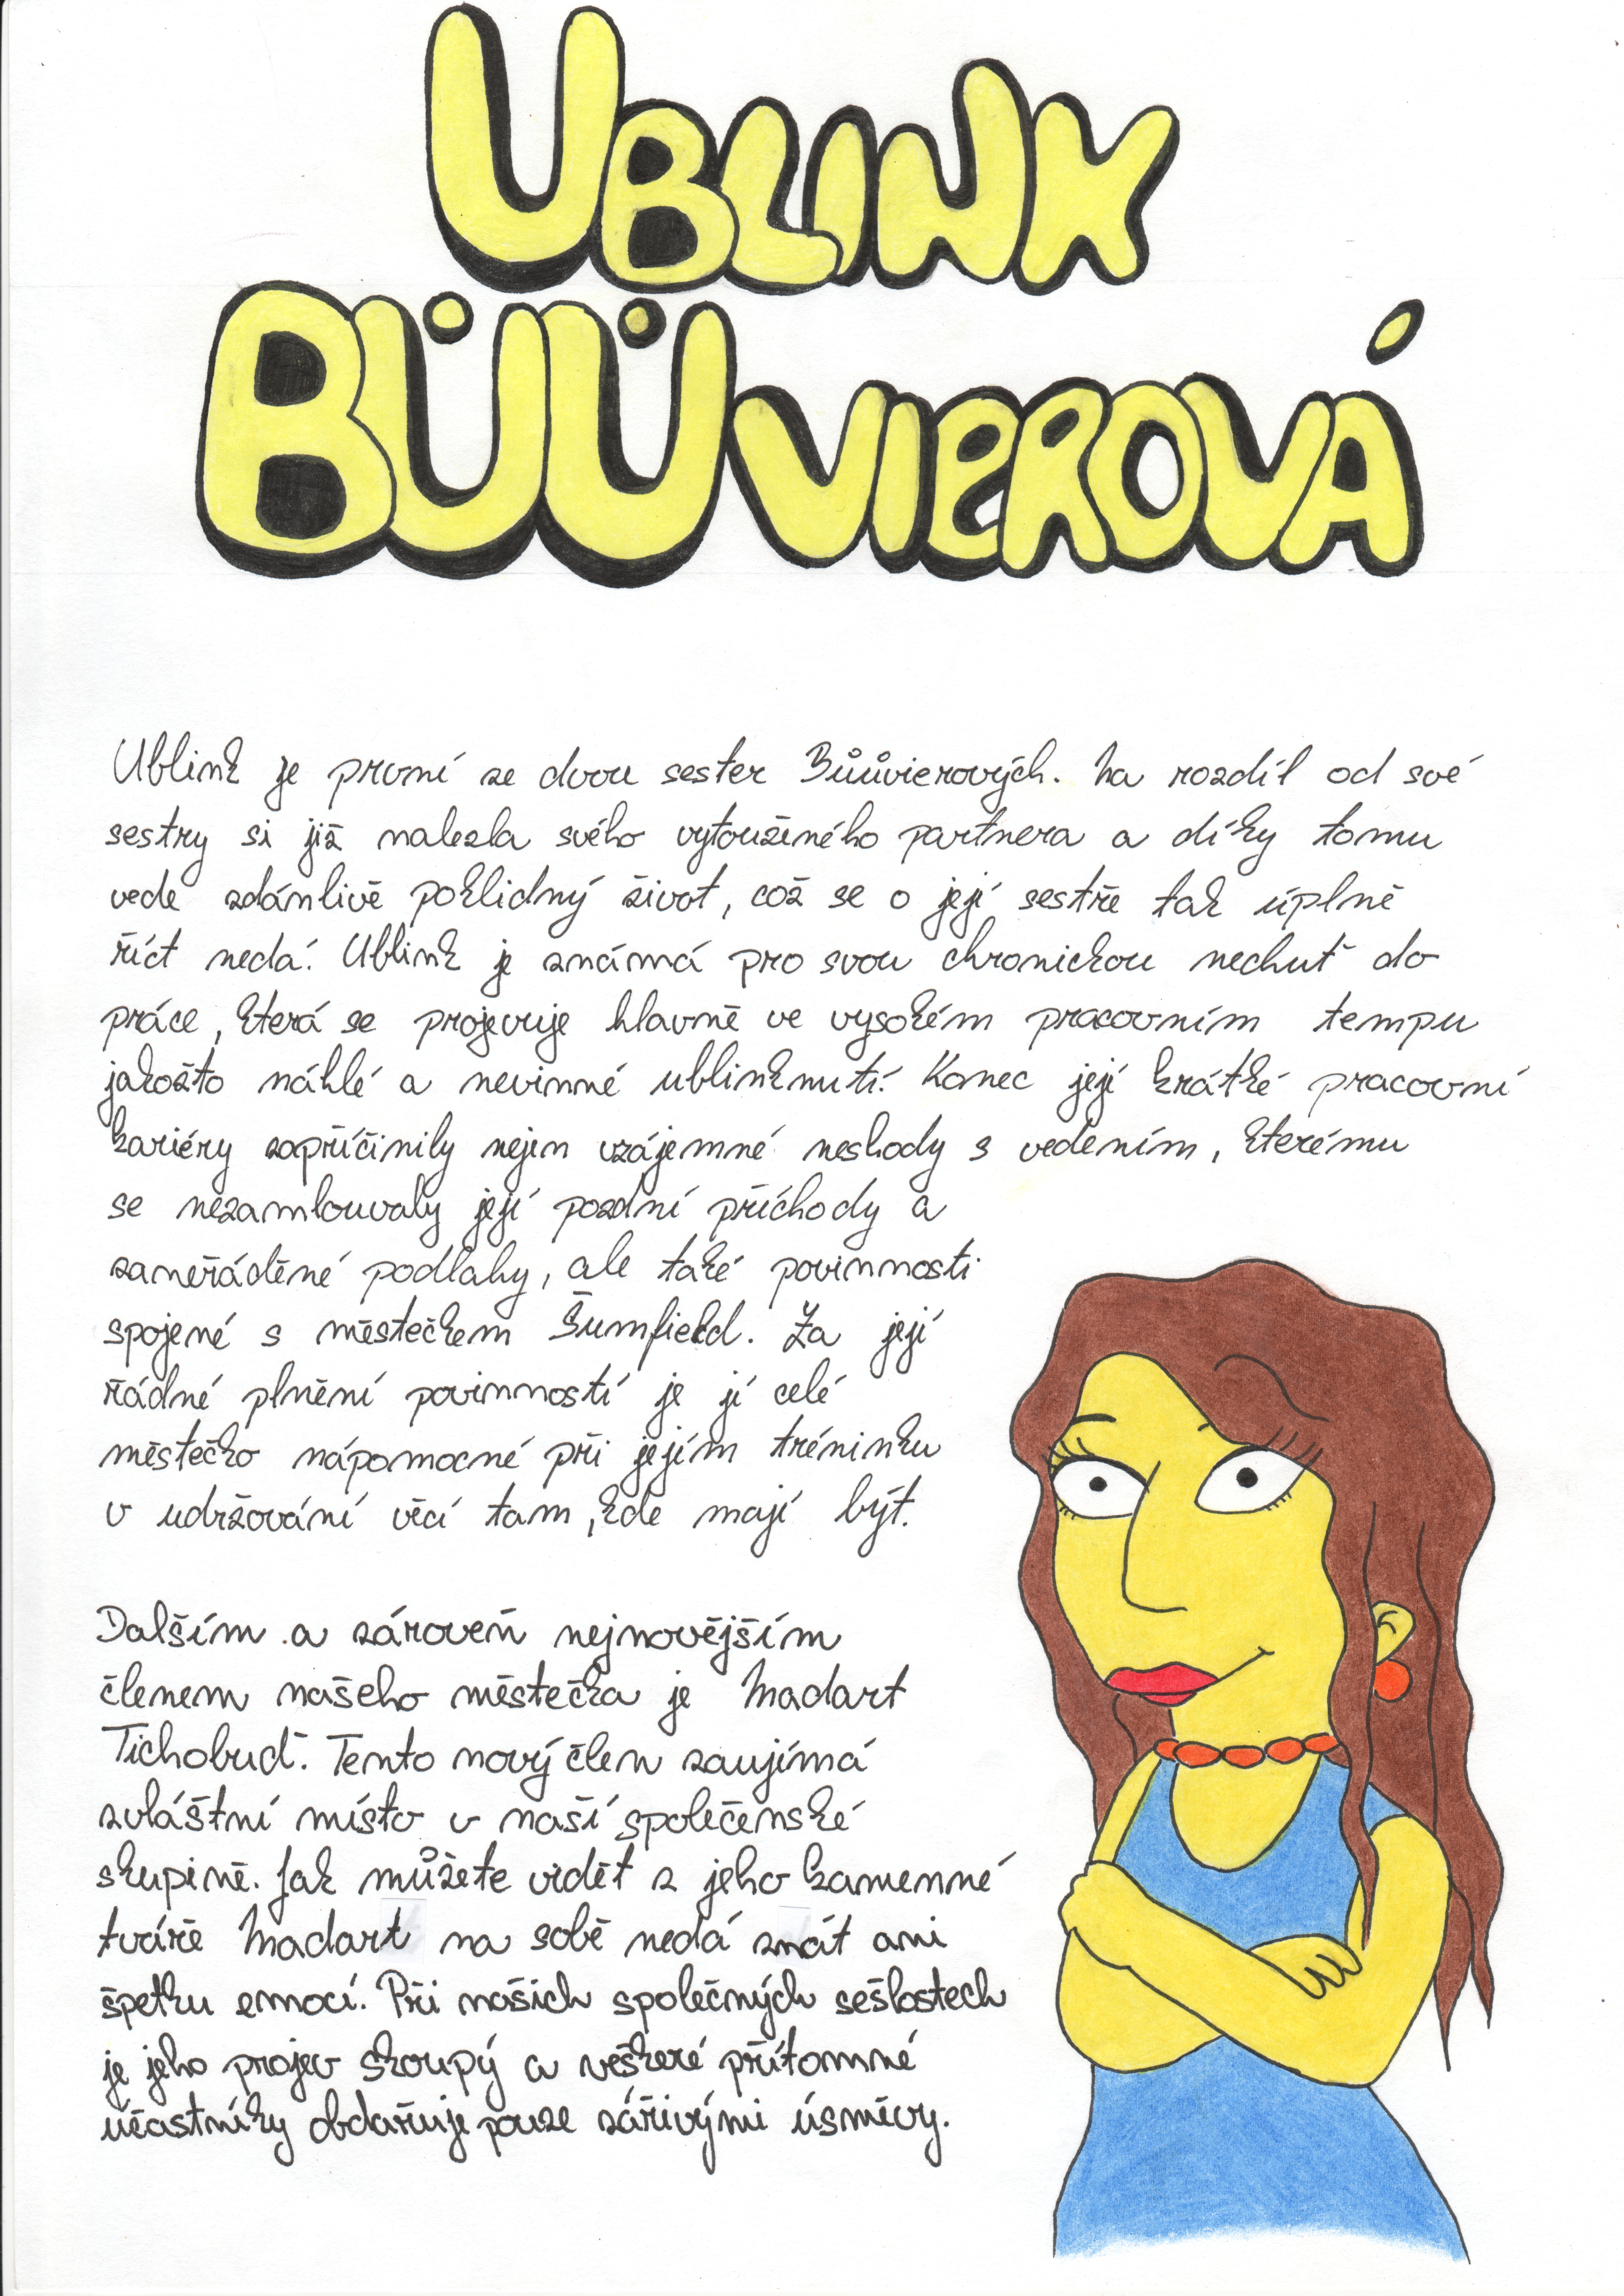 UBLINK
BŮŮVIEROVÁ
Ublink je první ze dvou sester Bůůvierových. Na rozdíl od své
sestry si již nalezla svého vytouženého partnera a díky tomu
vede zdánlivě poklidný život, což se o její sestře tak úplně
říct nedá. Ublink je známá pro svou chronickou nechuť do
práce, která se projevuje hlavně ve vysokém pracovním tempu
jakožto náhlé a nevinné ublinknutí. Konec její krátké pracovní
kariéry zapříčinily nejen vzájemné neshody s vedením, kterému
se nezamlouvaly její pozdní příchody a
zaneřáděné podlahy, ale také povinnosti
spojené s městečkem Šumfield. Za její
řádné plnění povinností je jí celé
městečko nápomocné při jejím tréninku
v udržování věcí tam, kde mají být.
Dalším a zároveň nejnovějším
členem našeho městečka je Madart
Tichobuď. Tento nový člen zaujímá
zvláštní místo v naší společenské
skupině. Jak můžete vidět z jeho kamenné
tváře Madart na sobě nedá znát ani
špetku emocí. Při našich společných sešlostech
je jeho projev skoupý a veškeré přítomné
účastníky obdařuje pouze zářivými úsměvy.